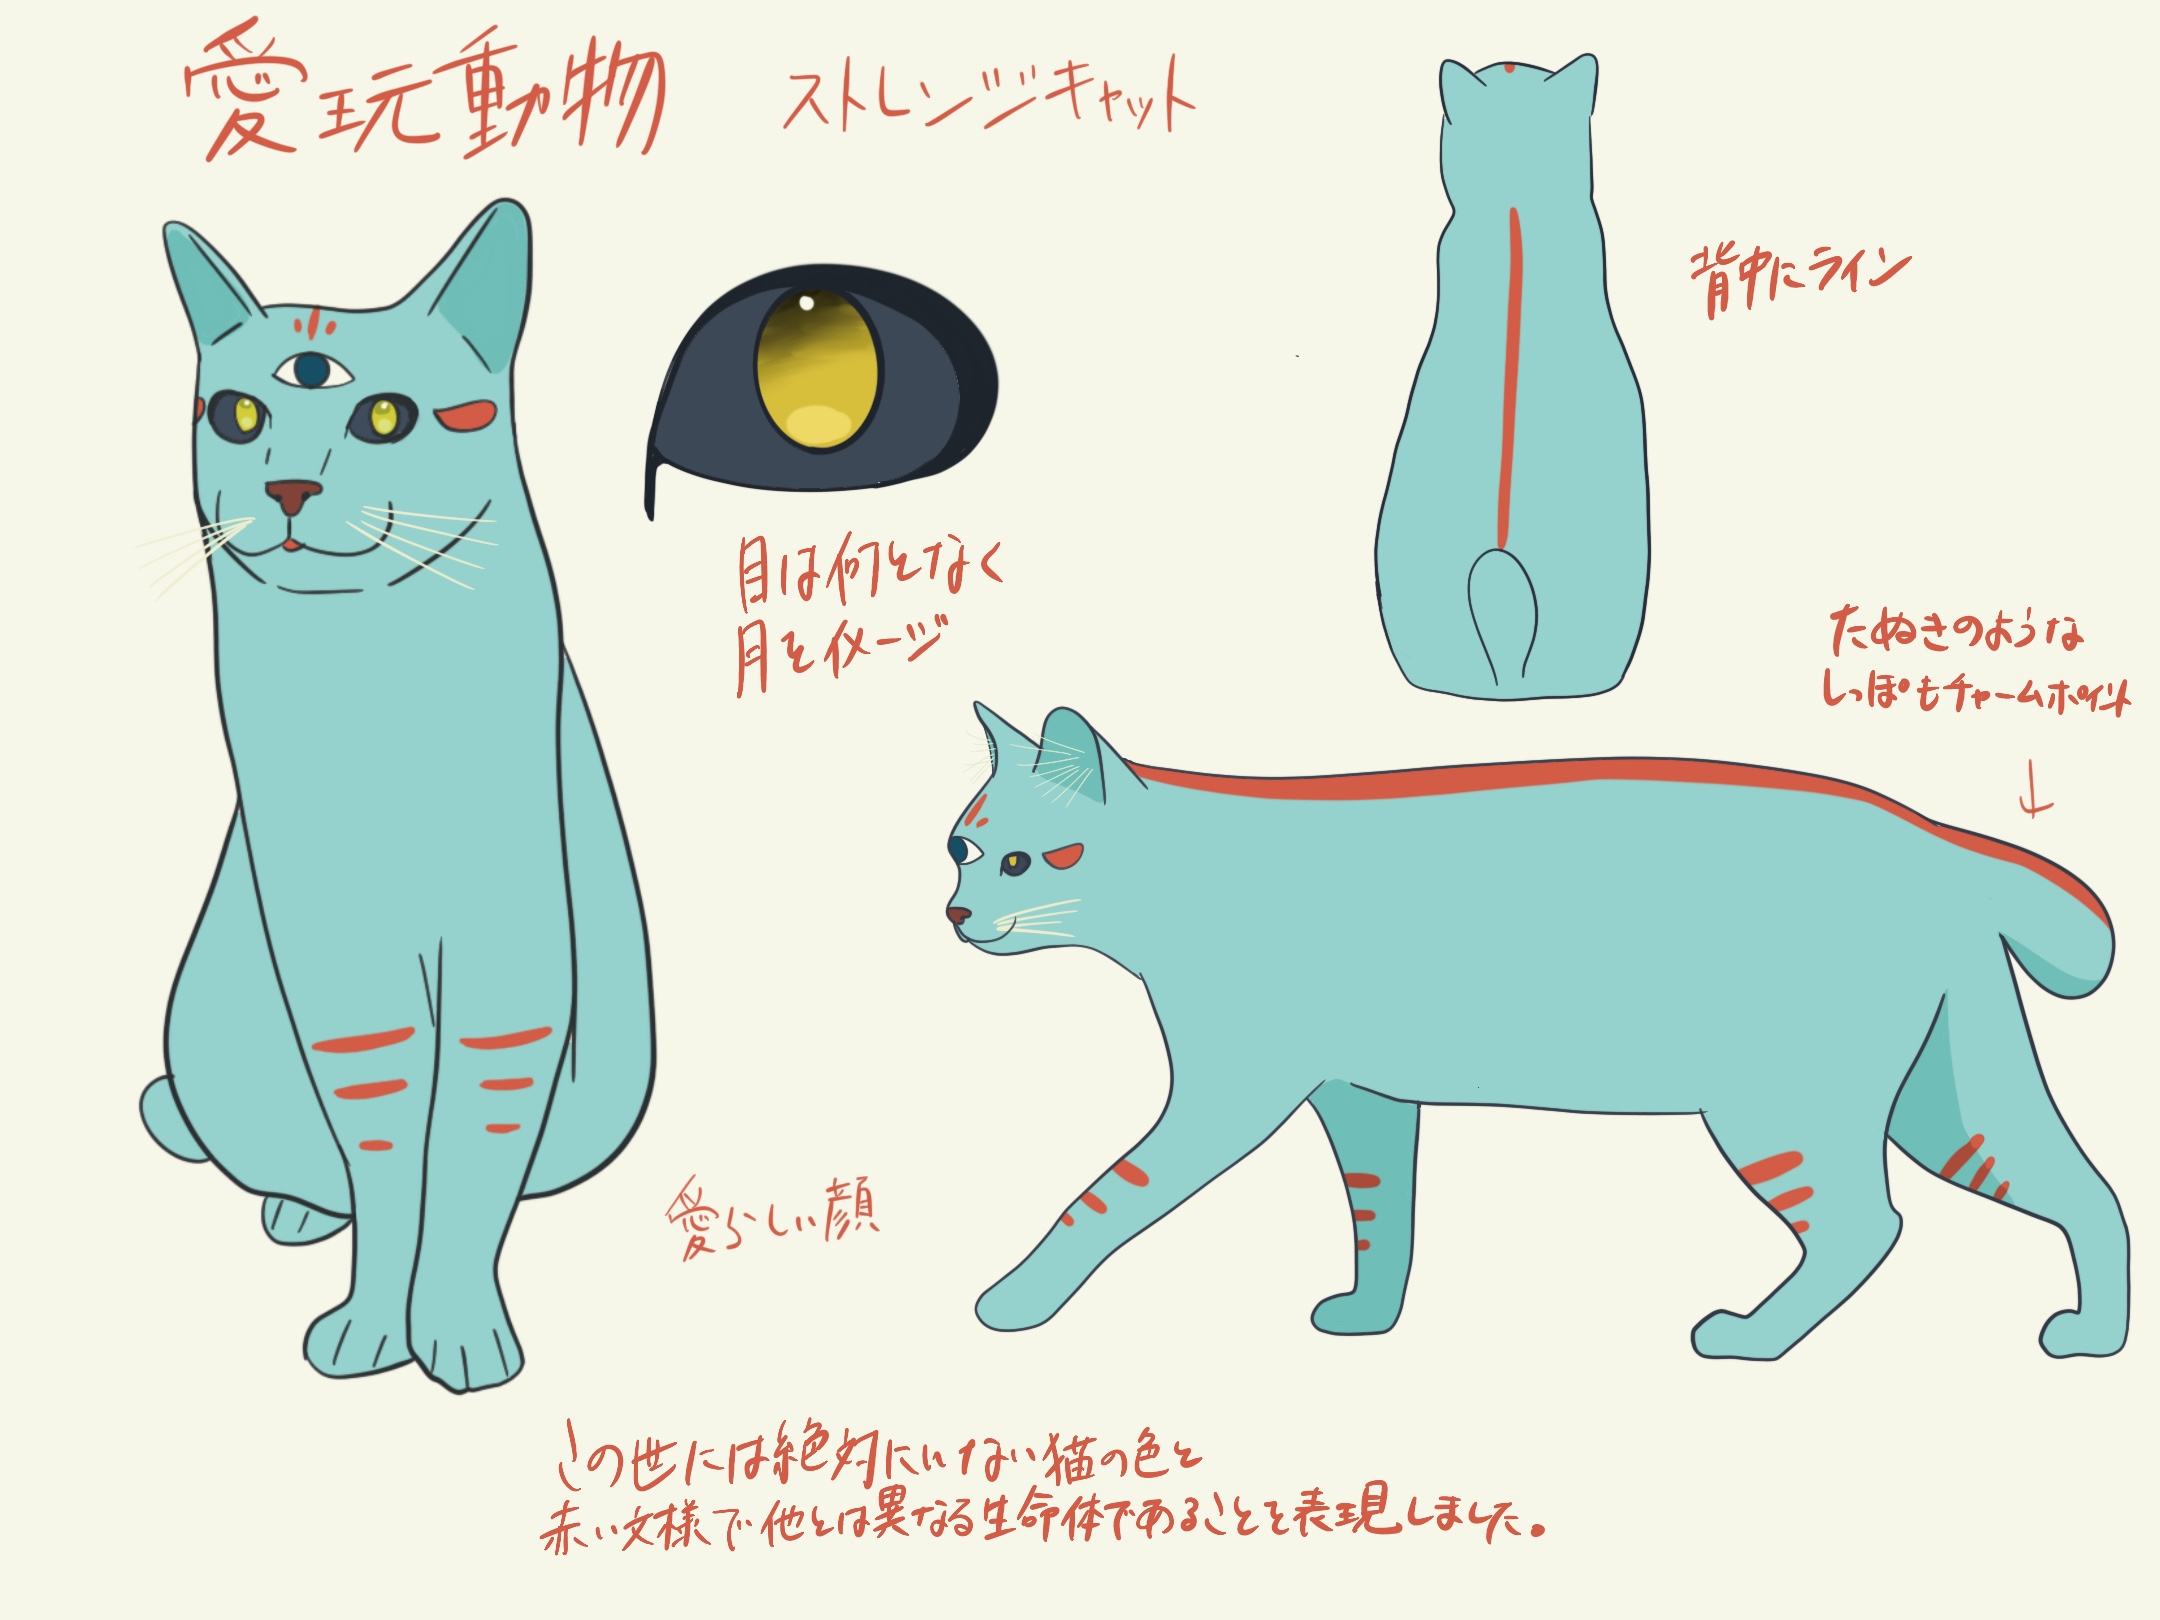 愛玩動物
ストレンジキャット
背中にライン
目は何となく
月をイメージ
たぬきのような
しっぽもチャームポイント
愛らしい顔
この世には絶対にいない猫の色と
赤い文様で他とは異なる生命体であることを表現しました。